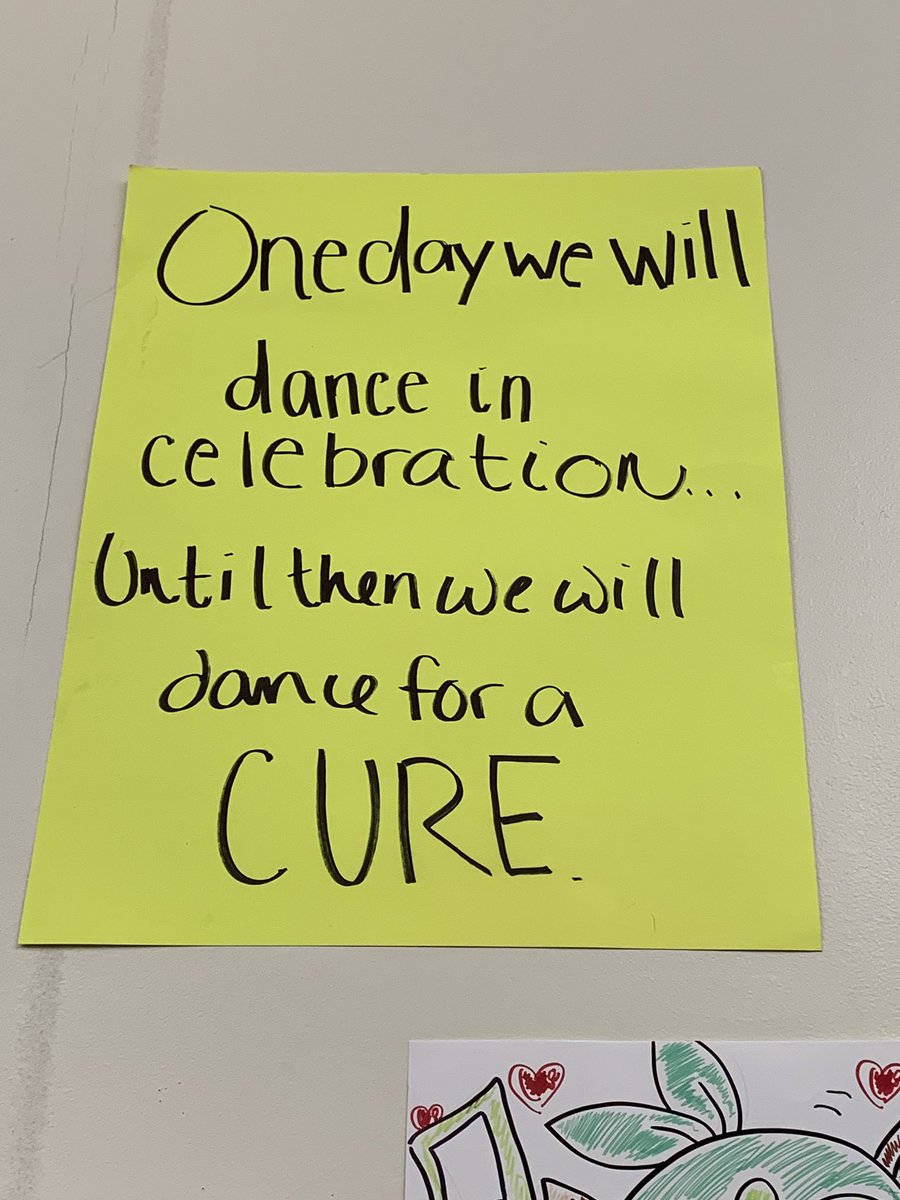 One day we will
dance in
celebration...
Until then we will
dance for a
CURE.